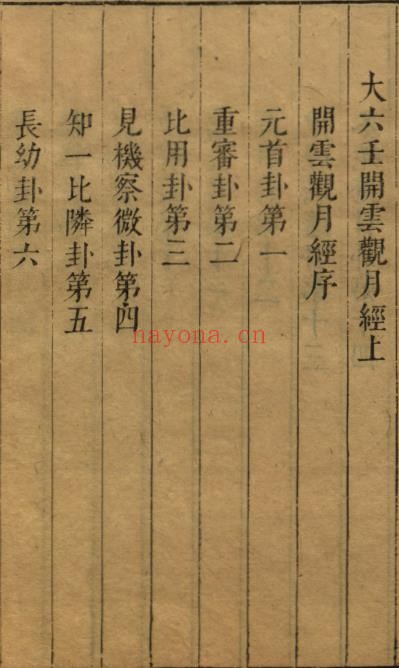 大六壬開雲觀月經上
開雲觀月經序
元首卦第一
重審卦第二
比用卦第三
見機察微卦第四
知一比隣卦第五
長幼卦第六
nayona.cn